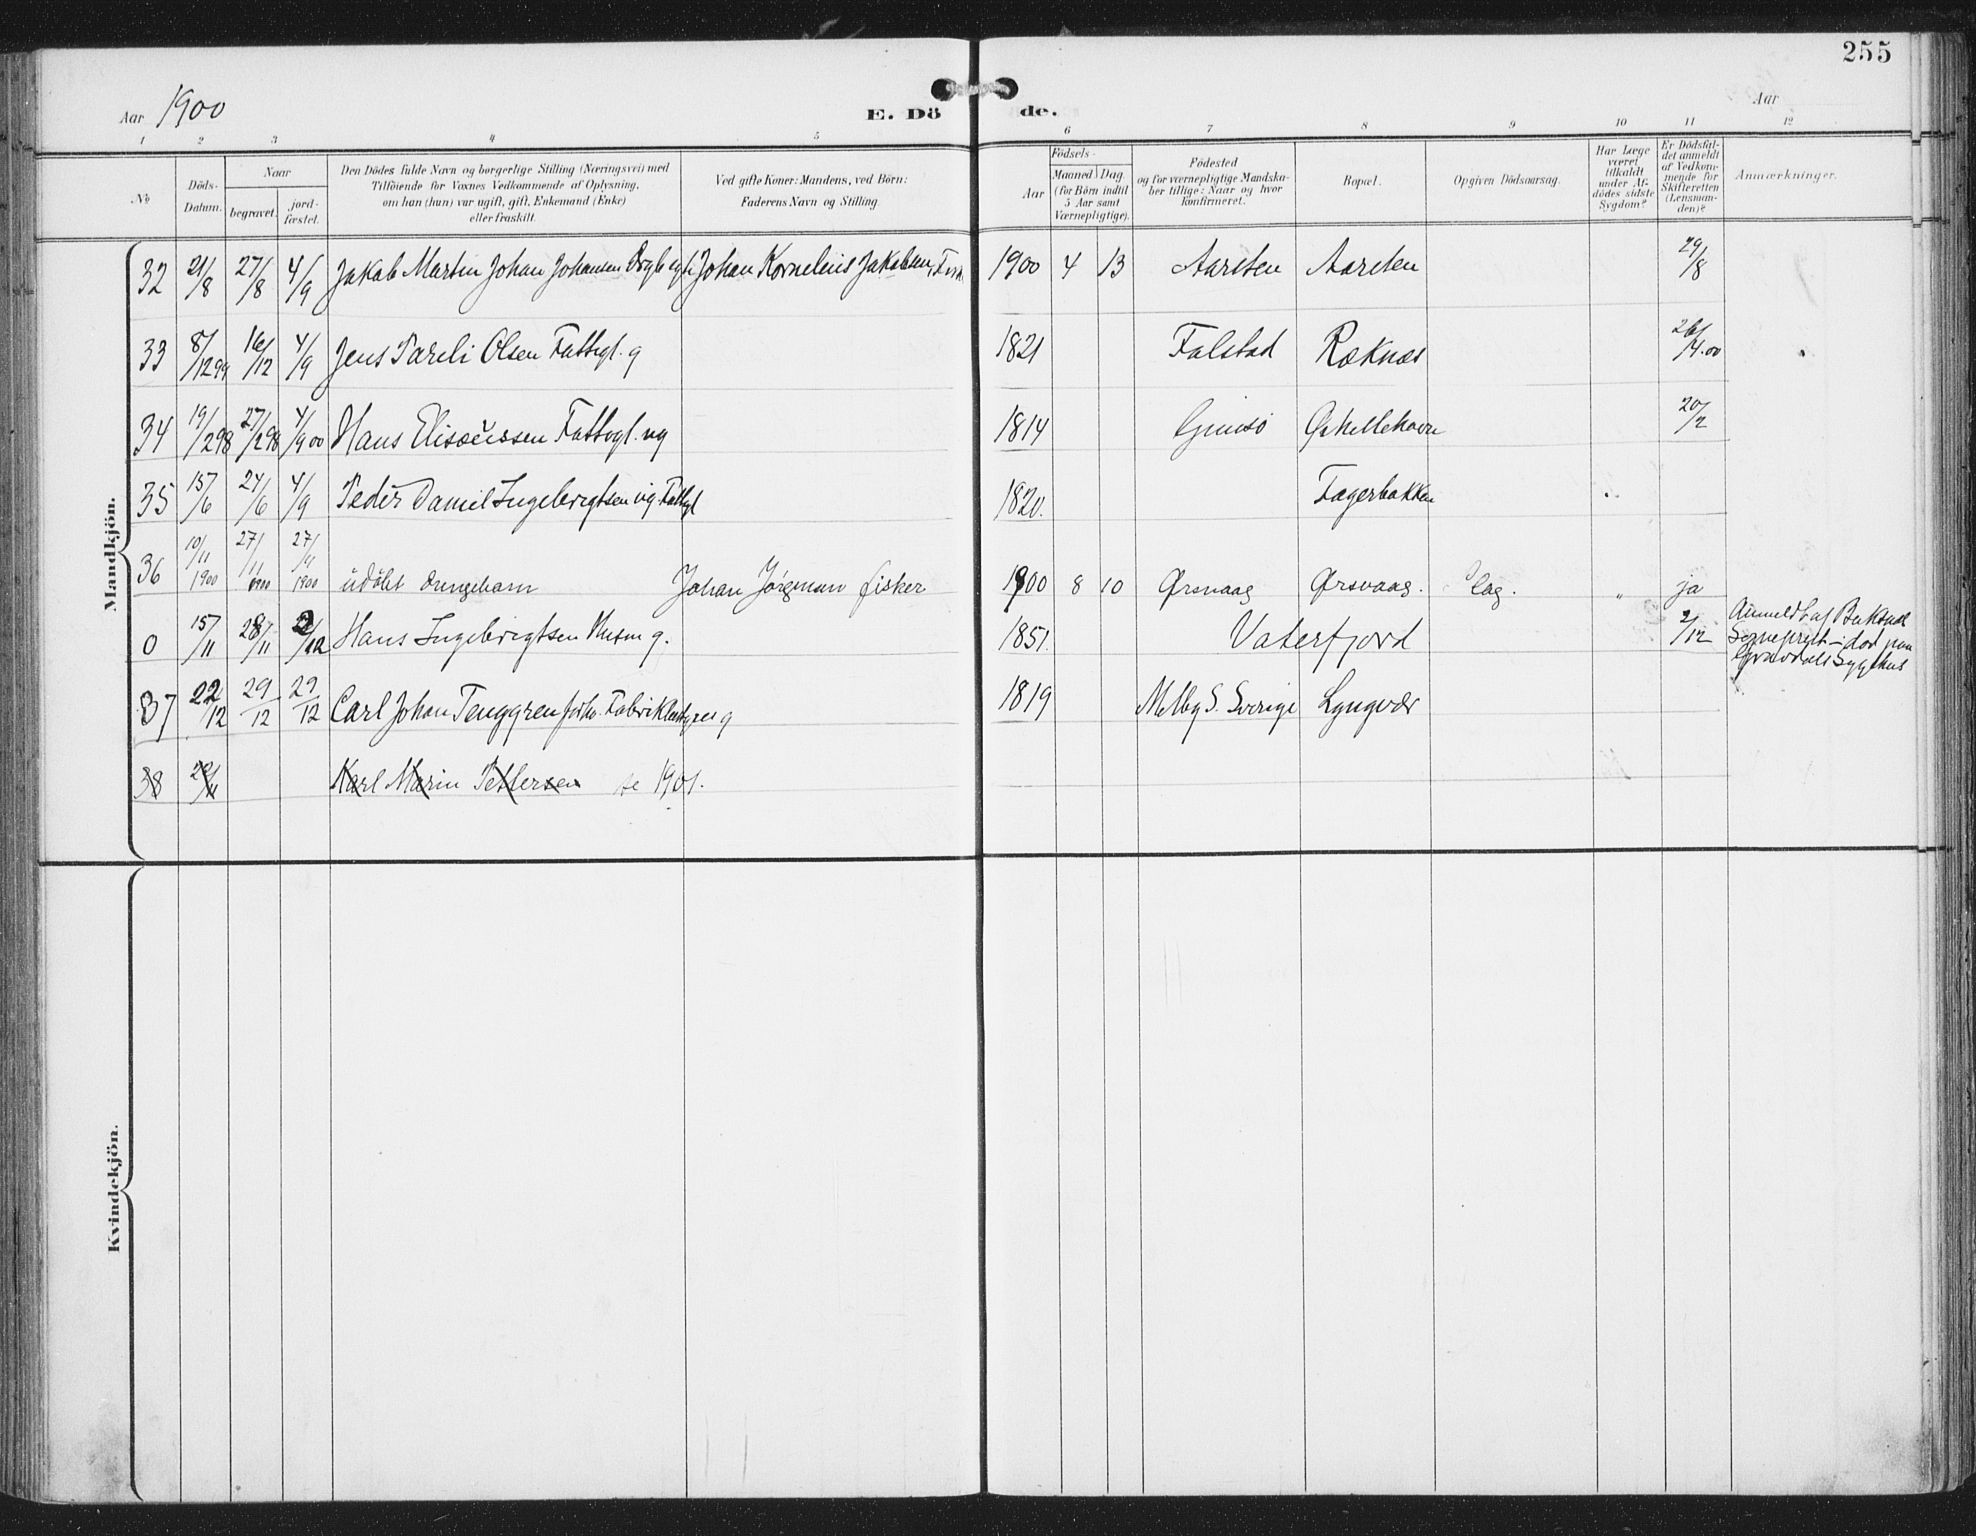 255
Aar 1900
E. Dö de.
Aar
1 2 3 4 5 6 7 8 9 10 11 12
No
Döds-Datum.
Naar
begravet.
jord-fæstet.
Den Dödes fulde Navn og borgerlige Stilling (Næringsvei) med
Tilföiende for Voxnes Vedkommende af Oplysning,
om han (hun) var ugift, gift, Enkemand (Enke)
eller fraskilt.
Ved gifte Koner: Mandens, ved Börn:
Faderens Navn og Stilling.
Födsels-
Aar
Maaned Dag.
(for Börn indtil
5 Aar samt
Værnepligtige).
Födested
og for værnepligtige Mandska-
ber tillige: Naar og hvor
Konfirmeret.
Bopæl.
Opgiven Dödsaarsag.
Har Læge
været
tilkaldt
under Af-
dödes sidste
Sygdom?
Er Dödsfal-
det anmeldt
af Vedkom-
mende for
Skifteretten
(Lensman-
den)?
Anmærkninger.
Mandkjön.
32 21/8 27/8 4/9 Jakob Martin Johan Johansen Johan Kornelius Jakobsen, 1900 4 13 Aarsten Aarsten 29/8
33 8/12 99 16/12 4/9 Jens Pareli Olsen Fattigl. g 1821 Falstad Røknæs 26/4.00
34 19/2 98 27/2 98 4/9 00 Hans Elisæussen Fattigl. ug 1814 Gimsø Ørhellehavn 20/2
35 15/6 24/6 4/9 Peder Daniel Ingebrigtsen ug. Fattigl 1820. Fagerbakken
36 10/11 1900 27/11 1900 27/11 1900 udøbt drengebarn Johan Jörgensen fisker 1900 8 10 Ørsvaag Ørsvaag. " ja
0 15/11 28/11 2/12 Hans Ingebrigtsen Husm g. 1851. Vaterfjord 2/12 Anmeldt af Buksnes
Sogneprest – död paa
Gravdals Sygehus
37 22/12 29/12 29/12 Carl Johan Tenggren forhv. Fabrikbestyrer g 1819 Melby S. Sverige Lyngvær
38 20/11 Karl Marin Pettersen se 1901.
Kvindekjön.